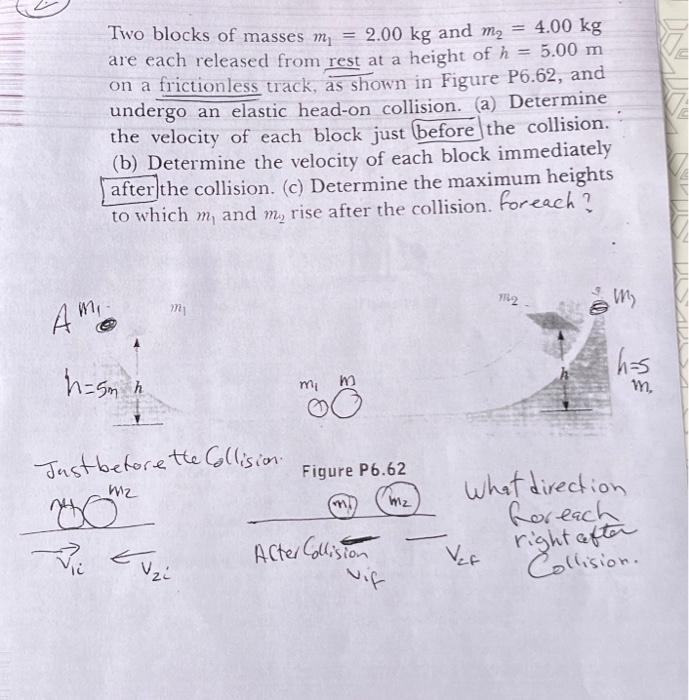 Two blocks of masses m₁ = 2.00 kg and m₂ = 4.00 kg
are each released from rest at a height of h = 5.00 m
on a frictionless track, as shown in Figure P6.62, and
undergo an elastic head-on collision. (a) Determine
the velocity of each block just before the collision.
(b) Determine the velocity of each block immediately
after the collision. (c) Determine the maximum heights
to which m₁ and m₂ rise after the collision. for each?
A m₁ m₁ m₂ m₂
h=5m h m₁ m h h=5
m,
Just before the Collision. Figure P6.62
m₂ m₁ m₂ What direction
for each
After Collision right after
V₁i V₂i V₁f V₂f Collision.